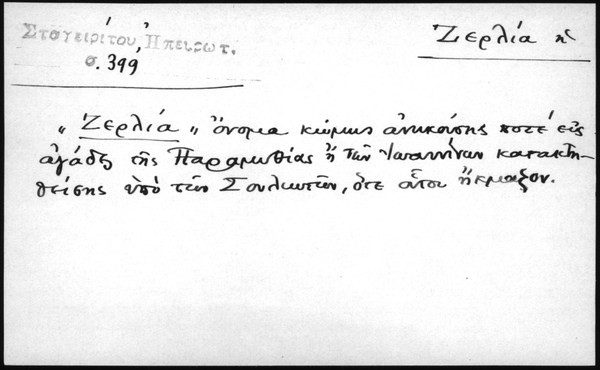 Σταγειρίτου, Ἠπειρωτ.
σ. 399
Ζερλία ἡ
„ Ζερλία „ ὄνομα κώμης ἀνηκούσης ποτέ εἰς
ἀγάδες τῆς Παραμυθίας ἤ τῶν Ἰωαννίνων κατακτη-
θείσης ὑπό τῶν Σουλιωτῶν, ὅτε οὗτοι ἤκμαζον.